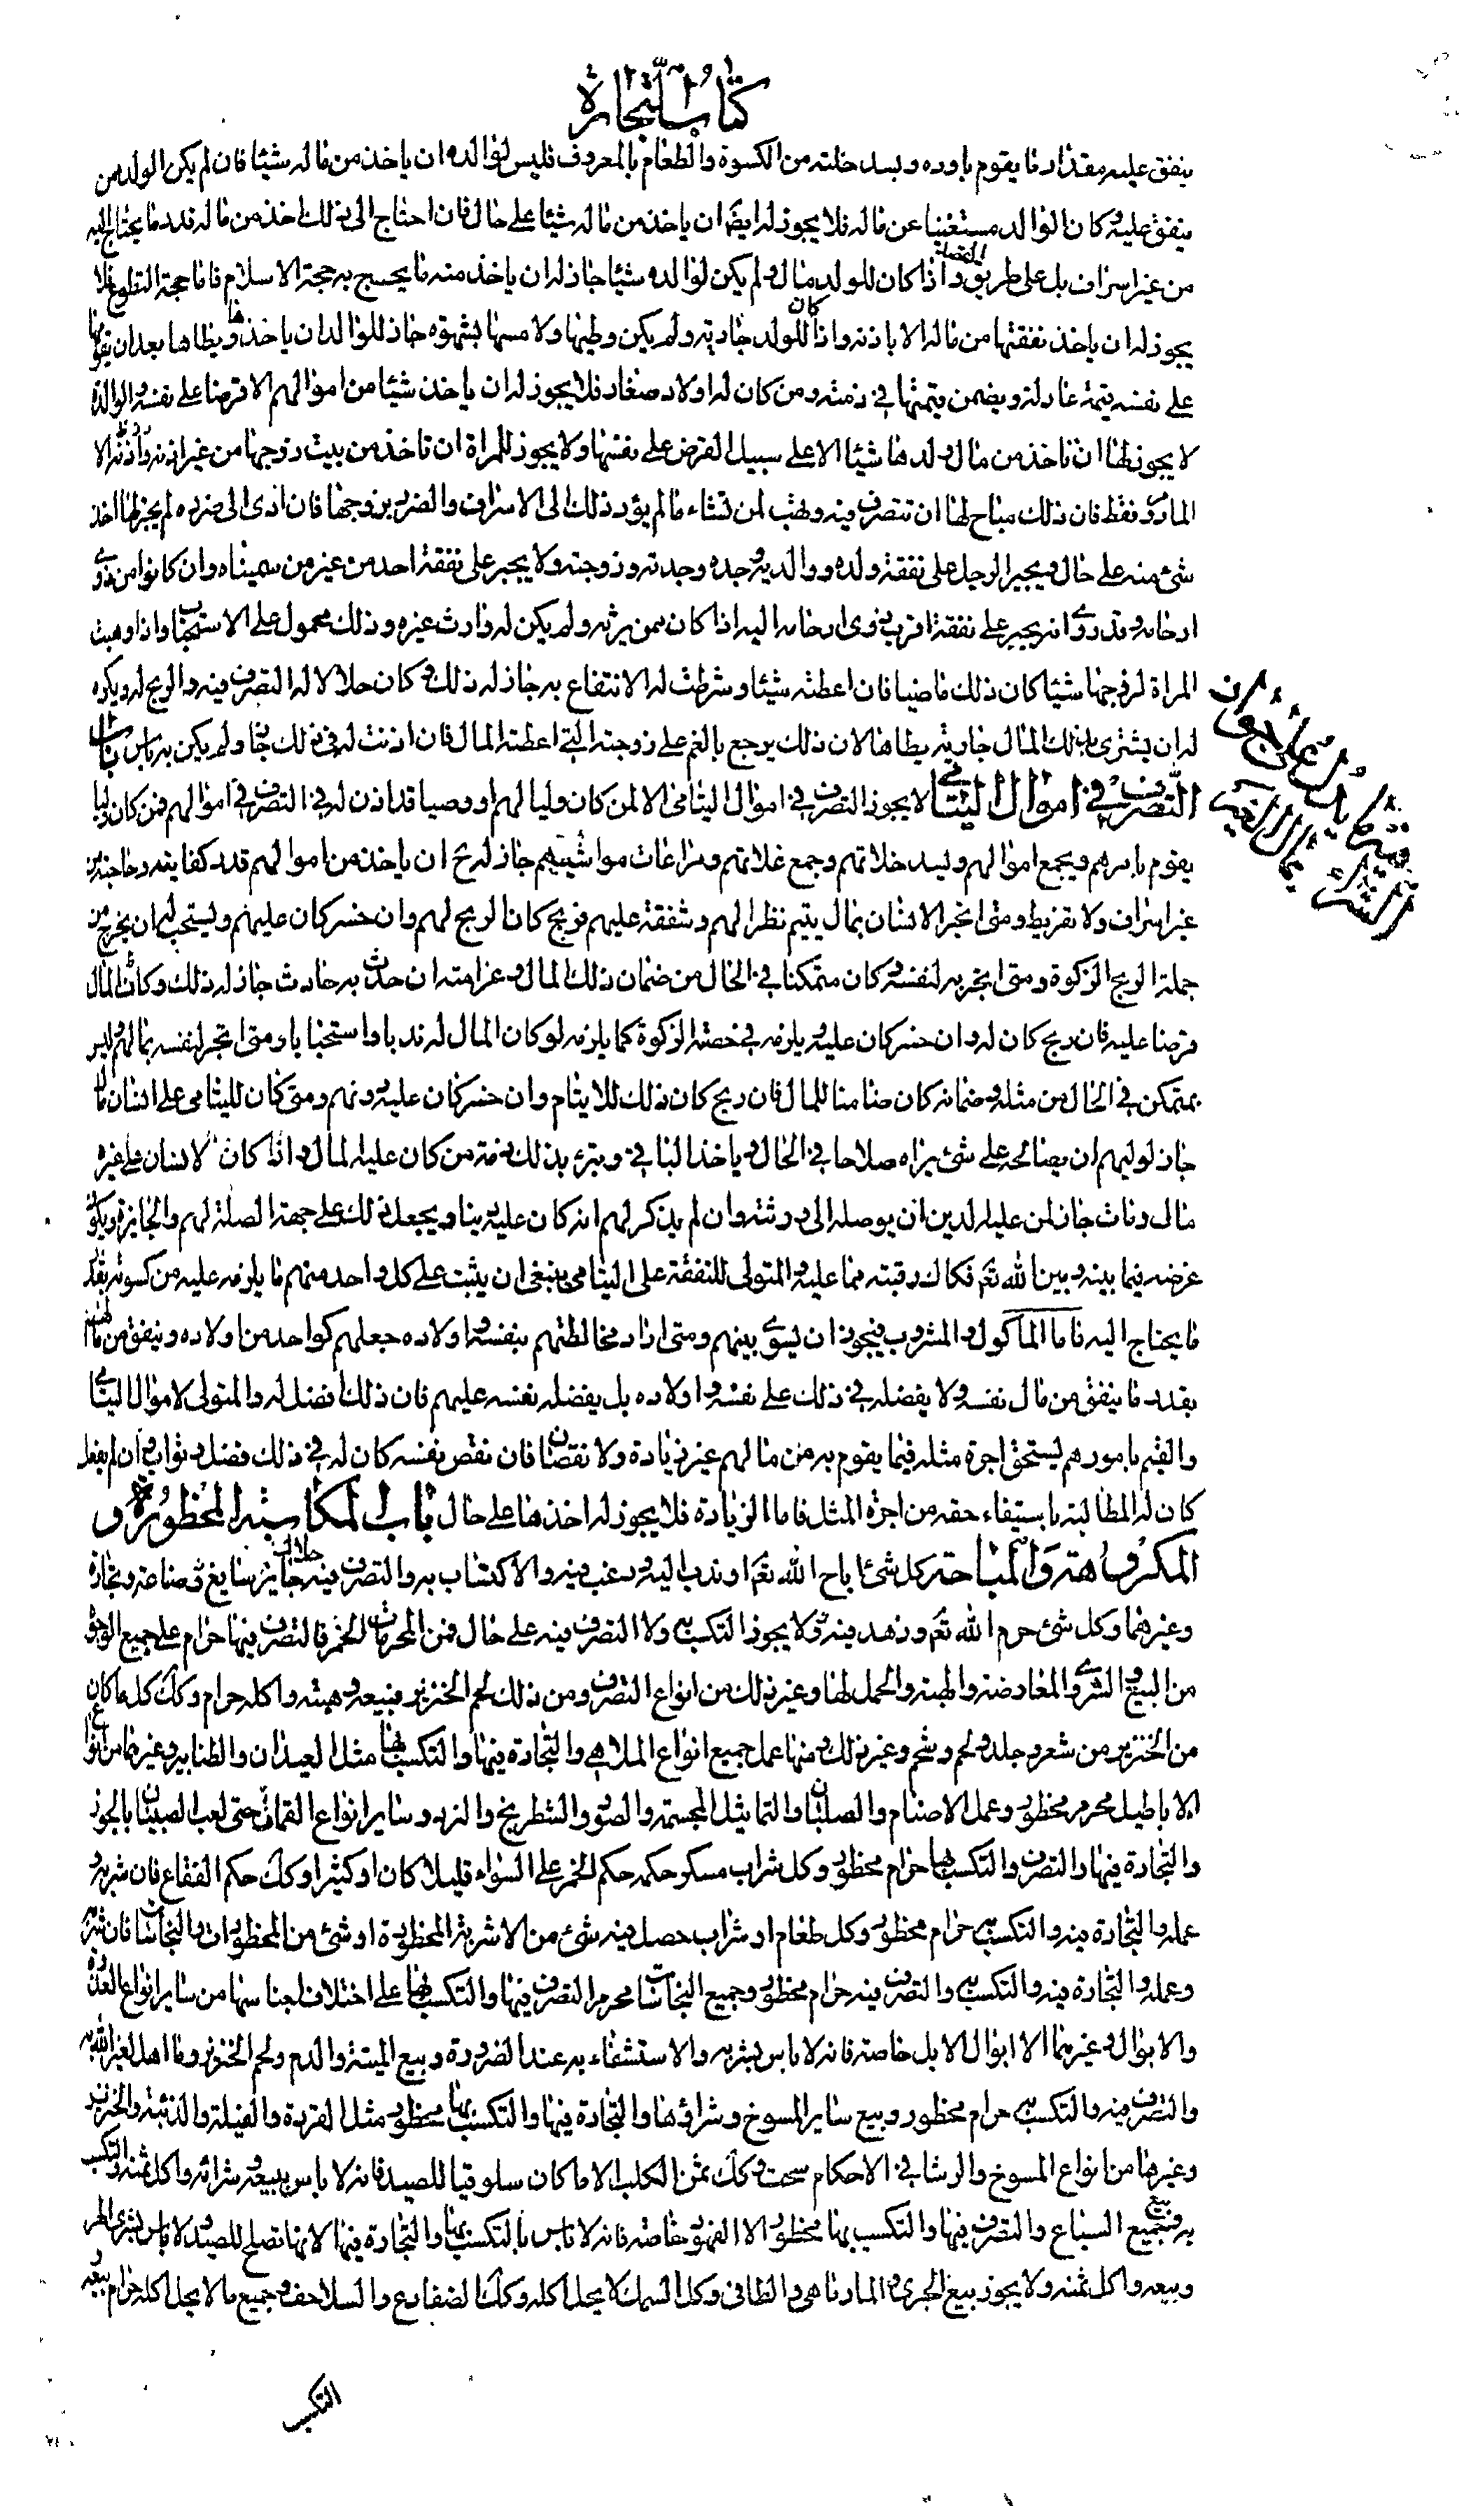 كتاب التجارة
ينفق عليه مقدار ما يقوم باوده ويسد خلته من الكسوة والطعام بالمعروف فليس لوالده ان ياخذ من ماله شيئا فان لم يكن الولد من
ينفق عليه وكان الوالد مستغنيا عن ماله فلا يجوز له ايضا ان ياخذ من ماله شيئا على حال فان احتاج الى ذلك اخذ من ماله قدر ما يحتاج اليه
من غير اسراف بل على طريق القصد واذا كان للولد مال ولم يكن لوالده شيئا جاز له ان ياخذ منه ما يحج به حجة الاسلام فاما حجة التطوع فلا
يجوز له ان ياخذ نفقتها من ماله الا باذنه واذا كان للولد جارية ولم يكن وطيها ولا مسها بشهوة جاز للوالد ان ياخذها ويطاها بعد ان يقومها
على نفسه قيمة عادلة ويضمن قيمتها في ذمته ومن كان له اولاد صغار فلا يجوز له ان ياخذ شيئا من اموالهم الا قرضا على نفسه والوالدة
لا يجوز لها ان تاخذ من مال ولدها شيئا الا على سبيل القرض على نفسها ولا يجوز للمراة ان تاخذ من بيت زوجها من غير اذنه واذنه الا
المادوم فقط فان ذلك مباح لها ان تتصرف فيه وتهب لمن تشاء ما لم يؤد ذلك الى الاسراف والضرر بزوجها فان ادى الى ضرره لم يجز لها اخذ
شئ منه على حال ويجبر الرجل على نفقة ولده ووالديه وجده وجدته وزوجته ولا يجبر على نفقة احد من غير من سميناه وان كانوا من ذوي
ارحامه وقد روي انه يجبر على نفقة اقرب ذوى ارحامه اليه اذا كان ممن يرثه ولم يكن له وارث غيره وذلك محمول على الاستحباب واذا وهبت
المراة لزوجها شيئا كان ذلك ماضيا فان اعطته شيئا وشرطت له الانتفاع به جاز له ذلك وكان حلالا له التصرف فيه والربح له ويكره
له ان يشترى بذلك المال جارية يطاها لان ذلك يرجع بالغم على زوجته التي اعطته المال فان اذنت له في ذلك جاز ولم يكن به باس باب
التصرف في اموال اليتامى لا يجوز التصرف في اموال اليتامى الا لمن كان وليا لهم او وصيا قد اذن له في التصرف في اموالهم فمن كان وليا
يقوم بامرهم ويجمع اموالهم ويسد خلاتهم وجمع غلاتهم ومراعات مواشيهم جاز له ح ان ياخذ من اموالهم قدر كفايته وحاجته من
غير اسراف ولا تفريط ومتى اتجر الانسان بمال يتيم نظرا لهم وشفقة عليهم فربح كان الربح لهم وان خسر كان عليهم ويستحب له ان يخرج من
جملة الربح الزكوة ومتى اتجر به لنفسه وكان متمكنا في الحال من ضمان ذلك المال وغرامته ان حدث به حادث جاز له ذلك وكان المال
قرضا عليه فان ربح كان له وان خسر كان عليه ويلزمه في حصته الزكوة كما يلزمه لو كان المال له ندبا واستحبابا ومتى اتجر لنفسه بمالهم وليس
بمتمكن في الحال من مثله وضمانه كان ضامنا للمال فان ربح كان ذلك للايتام وان خسر كان عليه دونهم ومتى كان لليتامى على انسان مال
جاز لوليهم ان يصالحه على شئ يراه صلاحا في الحال وياخذ الباقي وتبرئ بذلك ذمة من كان عليه المال واذا كان لانسان على غيره
مال ومات جاز لمن عليه الدين ان يوصله الى ورثته وان لم يذكر لهم انه كان عليه دينا ويجعل ذلك على جهة الصلة لهم والجايزة ويكون
غرضه فيما بينه وبين الله تع فكاك رقبته مما عليه والمتولى للنفقة على اليتامى ينبغي ان يثبت على كل واحد منهم ما يلزمه عليه من كسوته بقدر
ما يحتاج اليه فاما الماكول والمشروب فيجوز ان يسوي بينهم ومتى اراد مخالطتهم بنفسه واولاده جعلهم كواحد من اولاده وينفق من مالهم
بقدر ما ينفق من مال نفسه ولا يفضله في ذلك على نفسه واولاده بل يفضله نفسه عليهم فان ذلك افضل له والمتولى لاموال اليتامى
والقيم بامورهم يستحق اجرة مثله فيما يقوم به من مالهم غير زيادة ولا نقصان فان نقص نفسه كان له في ذلك فضل وثواب وان لم يفعل
كان له المطالبة باستيفاء حقه من اجرة المثل فاما الزيادة فلا يجوز له اخذها على حال باب المكاسب المحظورة و
المكروهة والمباحة كل شئ اباح الله تع او ندب اليه ورغب فيه والاكتساب به والتصرف فيه حلال جايز سايغ من صناعة وتجارة
وغيرهما وكل شئ حرم الله تع وزهد فيه ولا يجوز التكسب به ولا التصرف فيه على حال فمن المحرمات الخمر فالتصرف فيها حرام على جميع الوجوه
من البيع والشرى والمعاوضة والهبة والحمل لها وغير ذلك من انواع التصرف ومن ذلك لحم الخنزير فبيعه وهبته واكله حرام وكك كل ما كان
من الخنزير من شعر وجلد ولحم وشحم وغير ذلك ومنها عمل جميع انواع الملاهي والتجارة فيها والتكسب بها مثل العيدان والطنابير وغيرهما من انواع
الاباطيل محرم محظور وعمل الاصنام والصلبان والتماثيل المجسمة والصور والشطرنج والنرد وساير انواع القمار حتى لعب الصبيان بالجوز
والتجارة فيها والتصرف والتكسب بها حرام محظور وكل شراب مسكر حكمه حكم الخمر على السواء قليلا كان او كثيرا وكك حكم الفقاع فان شربه و
عمله والتجارة فيه والتكسب به حرام محظور وكل طعام او شراب حصل فيه شئ من الاشربة المحظورة او شئ من المحظورات والنجاسات فان شربه
وعمله والتجارة فيه والتكسب به والتصرف فيه حرام محظور وجميع النجاسات محرم التصرف فيها والتكسب بها على اختلاف اجناسها من ساير انواع العذرة
والابوال وغيرهما الا ابوال الابل خاصة فانه لا باس بشربه والاستشفاء به عند الضرورة وبيع الميتة والدم ولحم الخنزير وما اهل لغير الله به
والتصرف فيه والتكسب به حرام محظور وبيع ساير المسوخ وشراؤها والتجارة فيها والتكسب بها محظور مثل القردة والفيلة والدببة والخنزير
وغيرها من انواع المسوخ والرشا في الاحكام سحت وكك ثمن الكلب الا ما كان سلوقيا للصيد فانه لا باس ببيعه وشرائه واكل ثمنه والتكسب
به وبيع جميع السباع والتصرف فيها والتكسب بها محظور الا الفهود خاصة فانه لا باس بالتكسب بها والتجارة فيها لانها تصلح للصيد ولا باس بشرى الهر
وبيعه واكل ثمنه ولا يجوز بيع الجرى والمارماهى والطافى وكل السمك لا يحل اكله وكك الضفادع والسلاحف وجميع ما لا يحل اكله حرام بيعه
التكسب